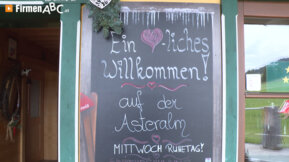 Firmen ABC.at
Ein ♥-liches
Willkommen!
auf der
Asteralm
MITTWOCH RUHETAG!